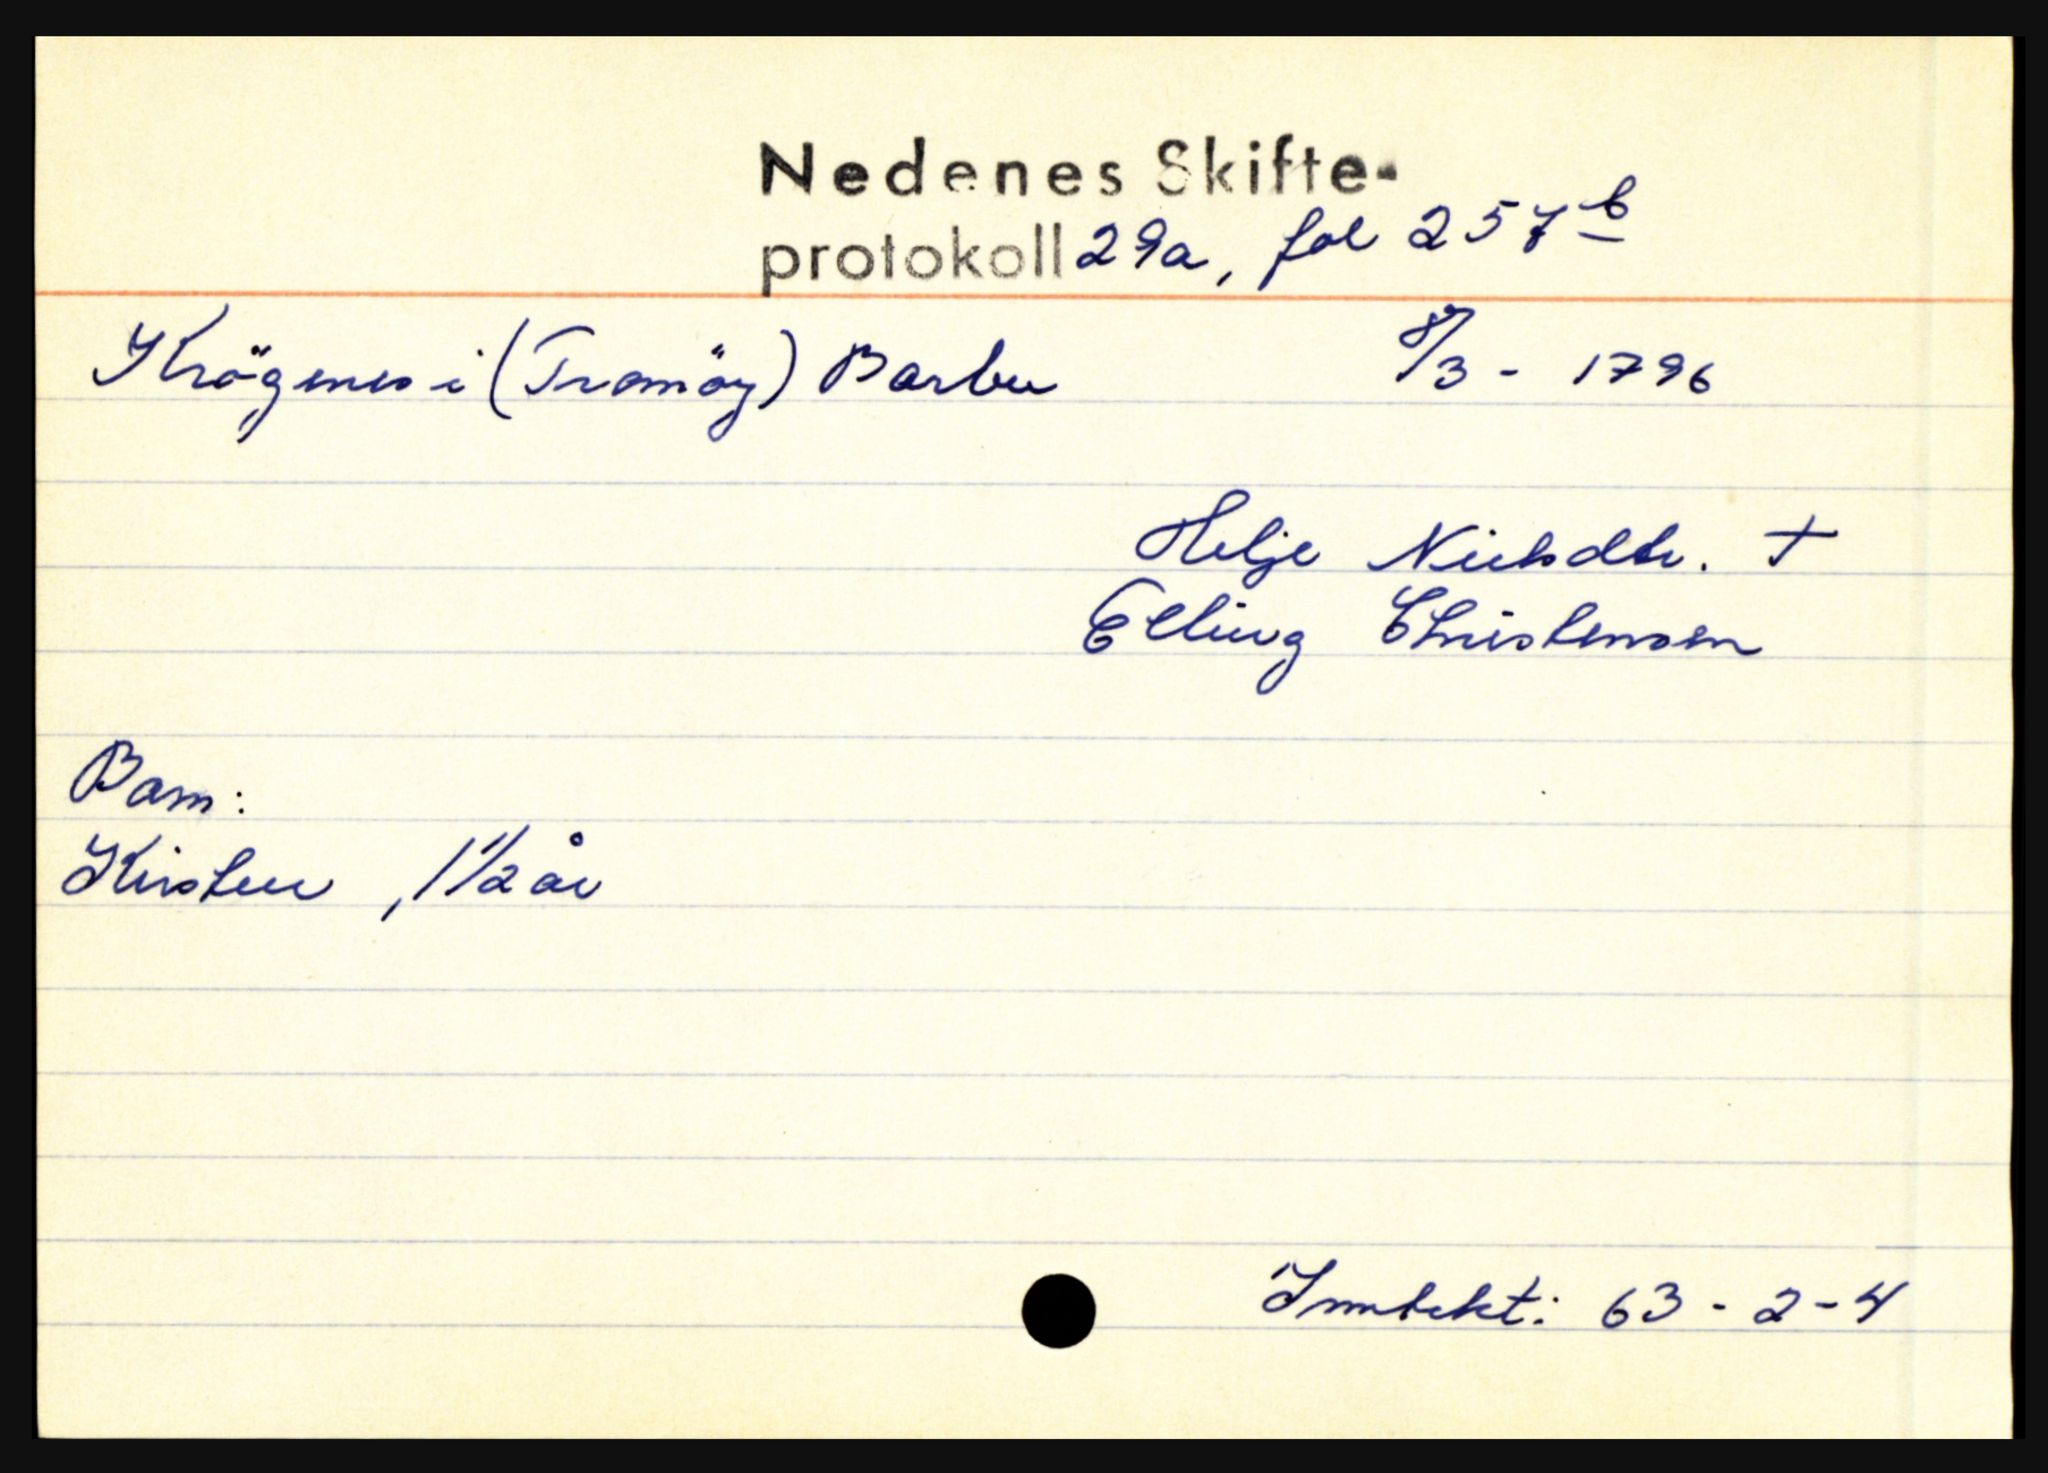 Nedenes Skifte-
protokoll 29a, fol 257b
Krögenes i (Tromöy) Barbu 8/3 - 1796
Helje Nielsdtr. †
Elling Christensen
Barn:
Kirsten , 1 1/2 år
Inntekt: 63 - 2 - 4